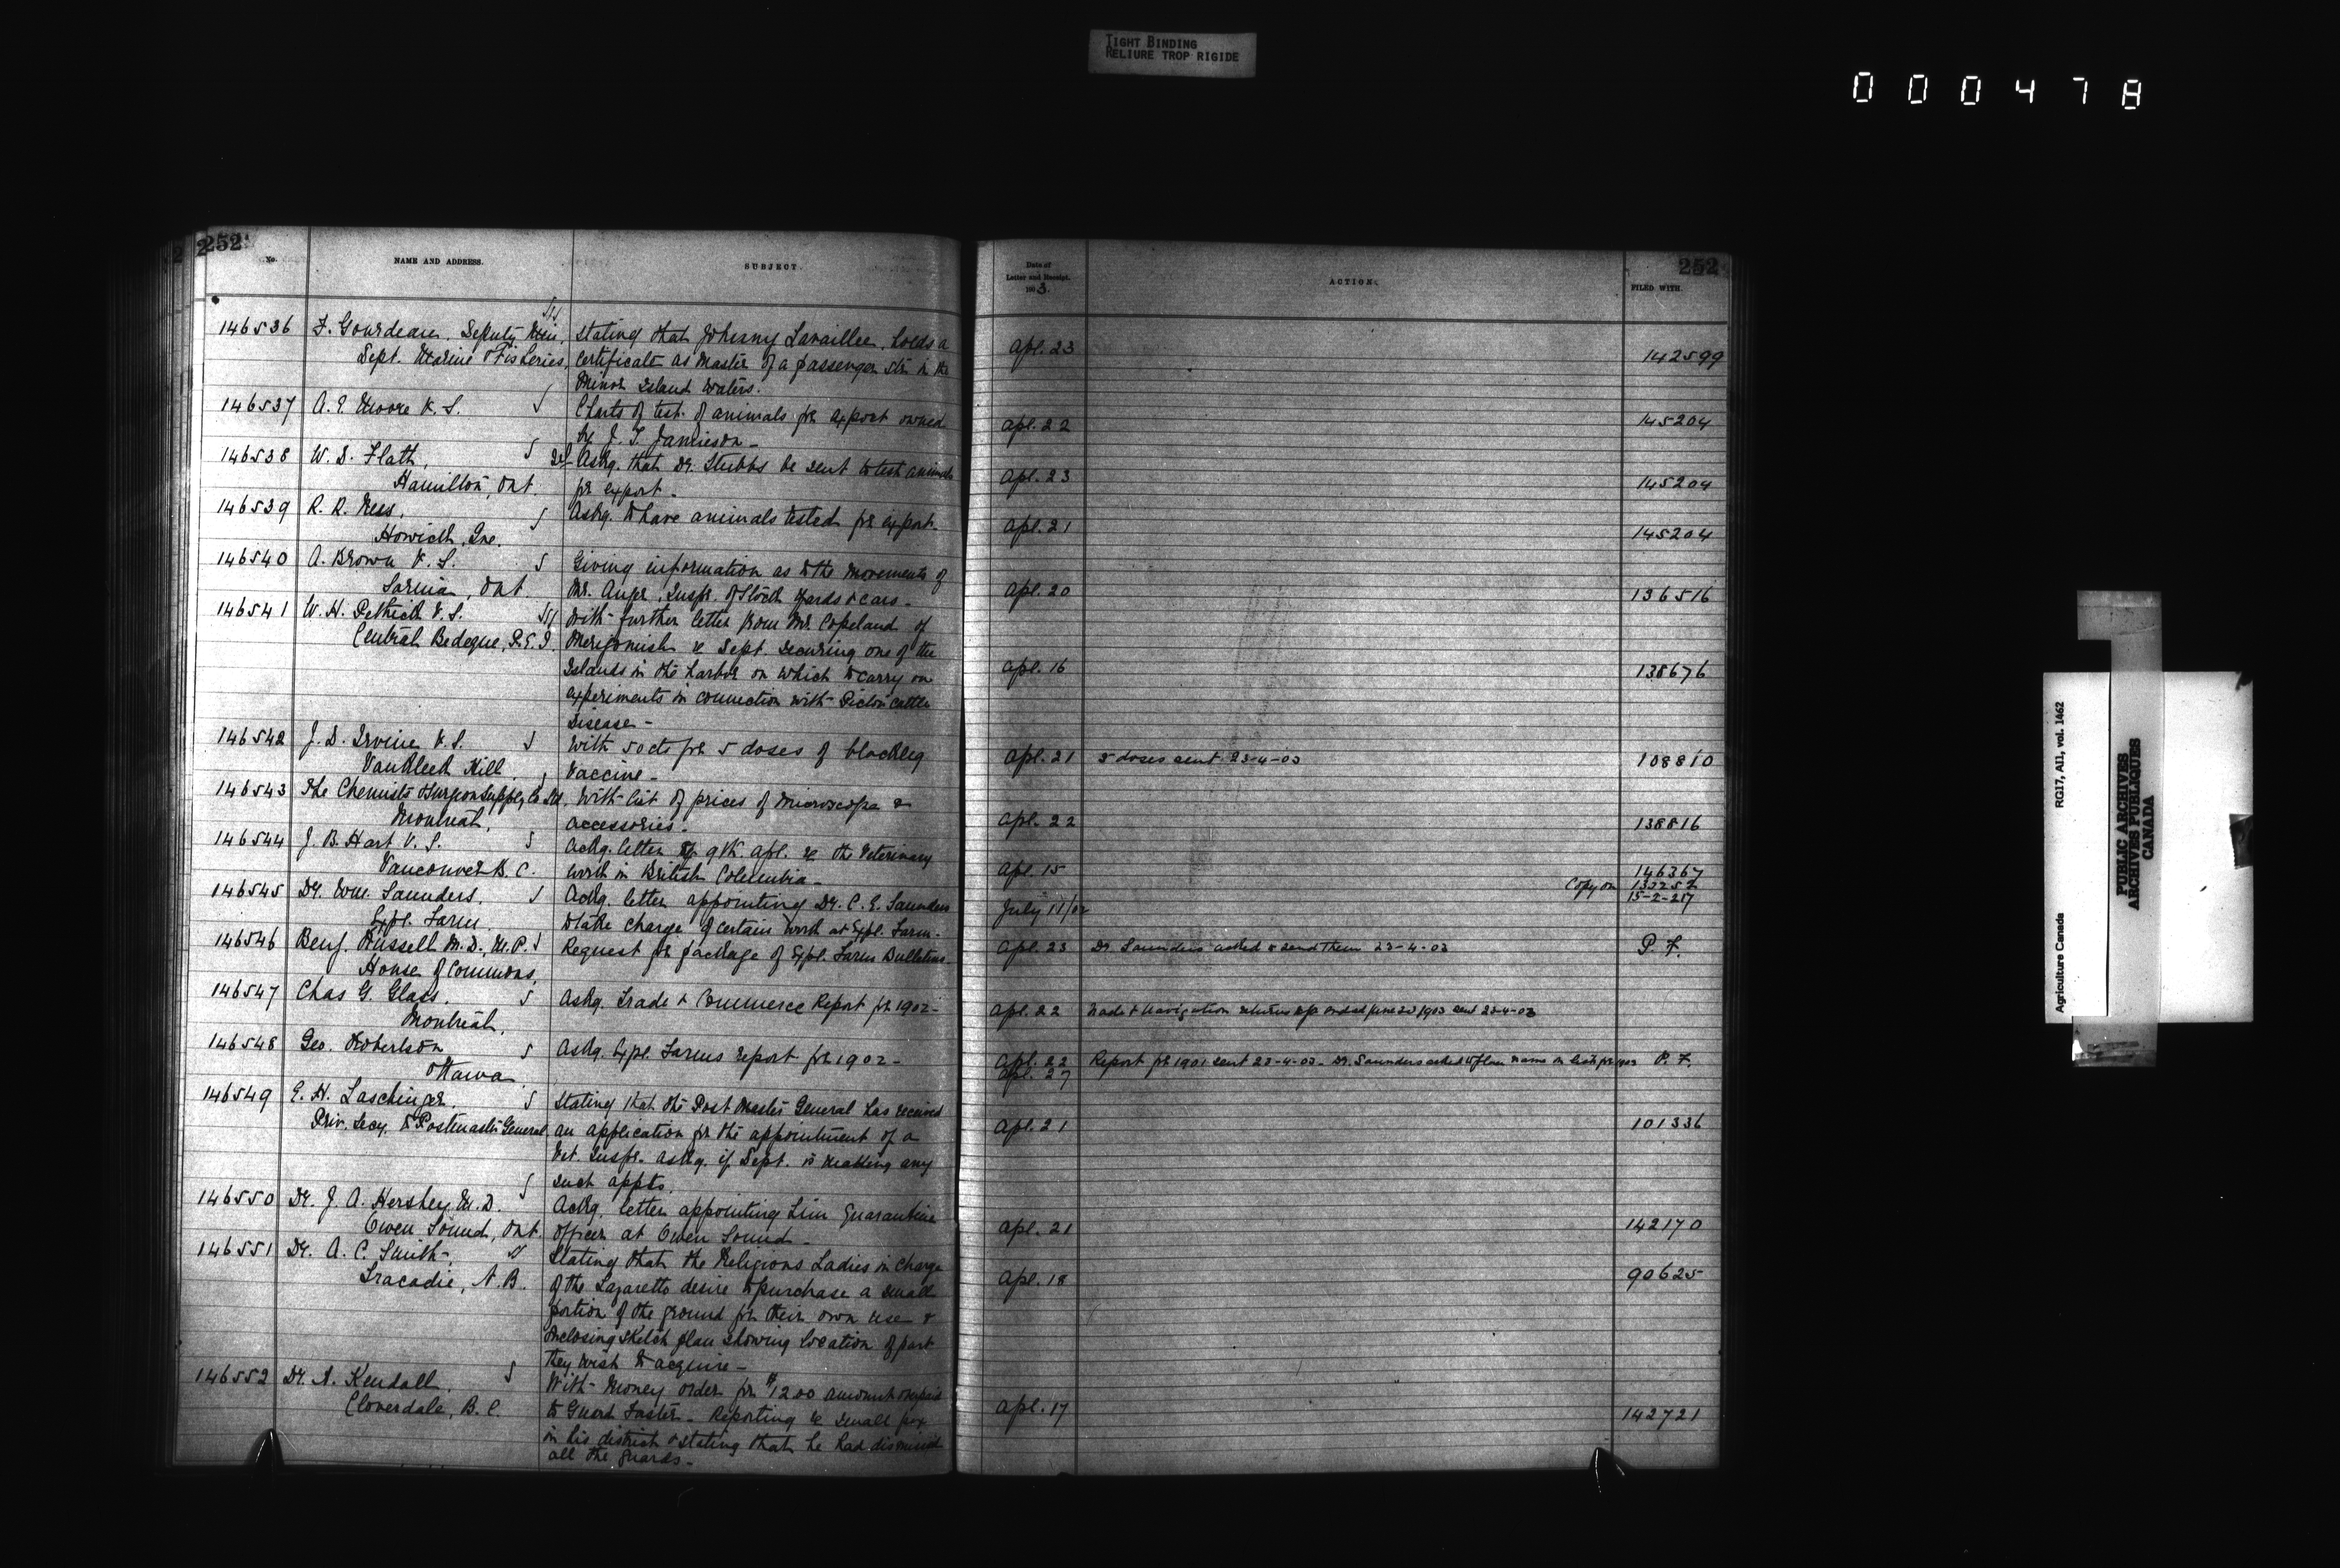 TIGHT BINDING
RELIURE TROP RIGIDE
000478
252
No.
NAME AND ADDRESS.
SUBJECT.
146536 F. Gourdeau, Deputy Min,
Dept. Marine & Fisheries,
Stating that Johnny Lavaillee, holds a
certificate as Master of a passenger str in the
Minor Island waters.
146537 A. E. Moore V.S.
Charts of test of animals for export owned
by J. T. Jamieson -
146538 W. D. Flath,
Hamilton, Ont.
Askg. that Dr. Stubbs be sent to test animals
for export -
146539 R. R. Ness,
Howick, Que.
Askg. to have animals tested for export.
146540 A. Brown V.S.
Sarnia, Ont
Giving information as to the movements of
Mr. Inspr. of Stock yards & cars -
146541 W. H. Pethick V.S.
Central Bedeque, P.E.I.
With further letter from Mr. Copeland of
Merigomish re Dept. securing one of the
Islands in the harbor on which to carry on
experiments in connection with Pictou cattle
Disease -
146542 J. D. Irvine V.S.
Vankleek Hill,
With 50 cts for 5 doses of blackleg
Vaccine -
146543 The Chemists & Surgeon Supply Co Ltd,
Montreal,
With list of prices of Microscope &
accessories -
146544 J. B. Hart V.S.
Vancouver B.C.
Ackg. letter of 9th. Apl. re the Veterinary
work in British Columbia -
146545 Dr. Wm. Saunders,
Expl. Farm
Ackg. letter appointing Dr. C. E. Saunders
to take charge of certain work at Expl. Farm -
146546 Benj. Russell M.D., M.P.
House of Commons,
Request for package of Expl. Farm Bulletins -
147547 Chas G. Glass,
Montreal,
Askg. Trade & Commerce Report for 1902 -
146548 Geo. Robertson
Ottawa
Askg. Expl. Farms report for 1902 -
146549 E. H. Laschinger,
Priv. Secy. to Postmaster General,
Stating that the Post Master General has received
an application for the appointment of a
Vet. Inspr. askg. if Dept. is making any
such appts.
146550 Dr. J. A. Hershey M.D.
Owen Sound, Ont.
Ackg. letter appointing him Quarantine
Officer at Owen Sound -
146551 Dr. A. C. Smith,
Tracadie, N.B.
Stating that the Religious Ladies in charge
of the Lazaretto desire to purchase a small
portion of the ground for their own use &
enclosing sketch plan showing location of part
they wish to acquire -
146552 Dr. A. Kendall,
Cloverdale, B.C.
With Money order for $12.00 amount overpaid
to Guard Foster - Reporting re small pox
in his district & stating that he had dismissed
all the guards -
252
Date of
Letter and Receipt.
1903.
ACTION.
FILED WITH.
Apl. 23 142599
Apl. 22 145204
Apl. 23 145204
Apl. 21 145204
Apl. 20 136516
Apl. 16 138676
Apl. 21 5 doses sent 23-4-03 108810
Apl. 22 138816
Apl. 15 146367
Copy on
15-2-217
July 11/02
Apl. 23 Dr. Saunders asked to send them 23-4-03 P. F.
Apl. 22 Trade & Navigation returns ended June 30/1903 sent 23-4-03
Apl. 22 Report for 1901 sent 23-4-03 - Dr. Saunders asked to place name on list for 1902 P. F.
Apl. 27
Apl. 21 101336
Apl. 21 142170
Apl. 18 90625
Apl. 17 142721
Agriculture Canada
RG17, AII, vol. 1462
PUBLIC ARCHIVES
ARCHIVES PUBLIQUES
CANADA